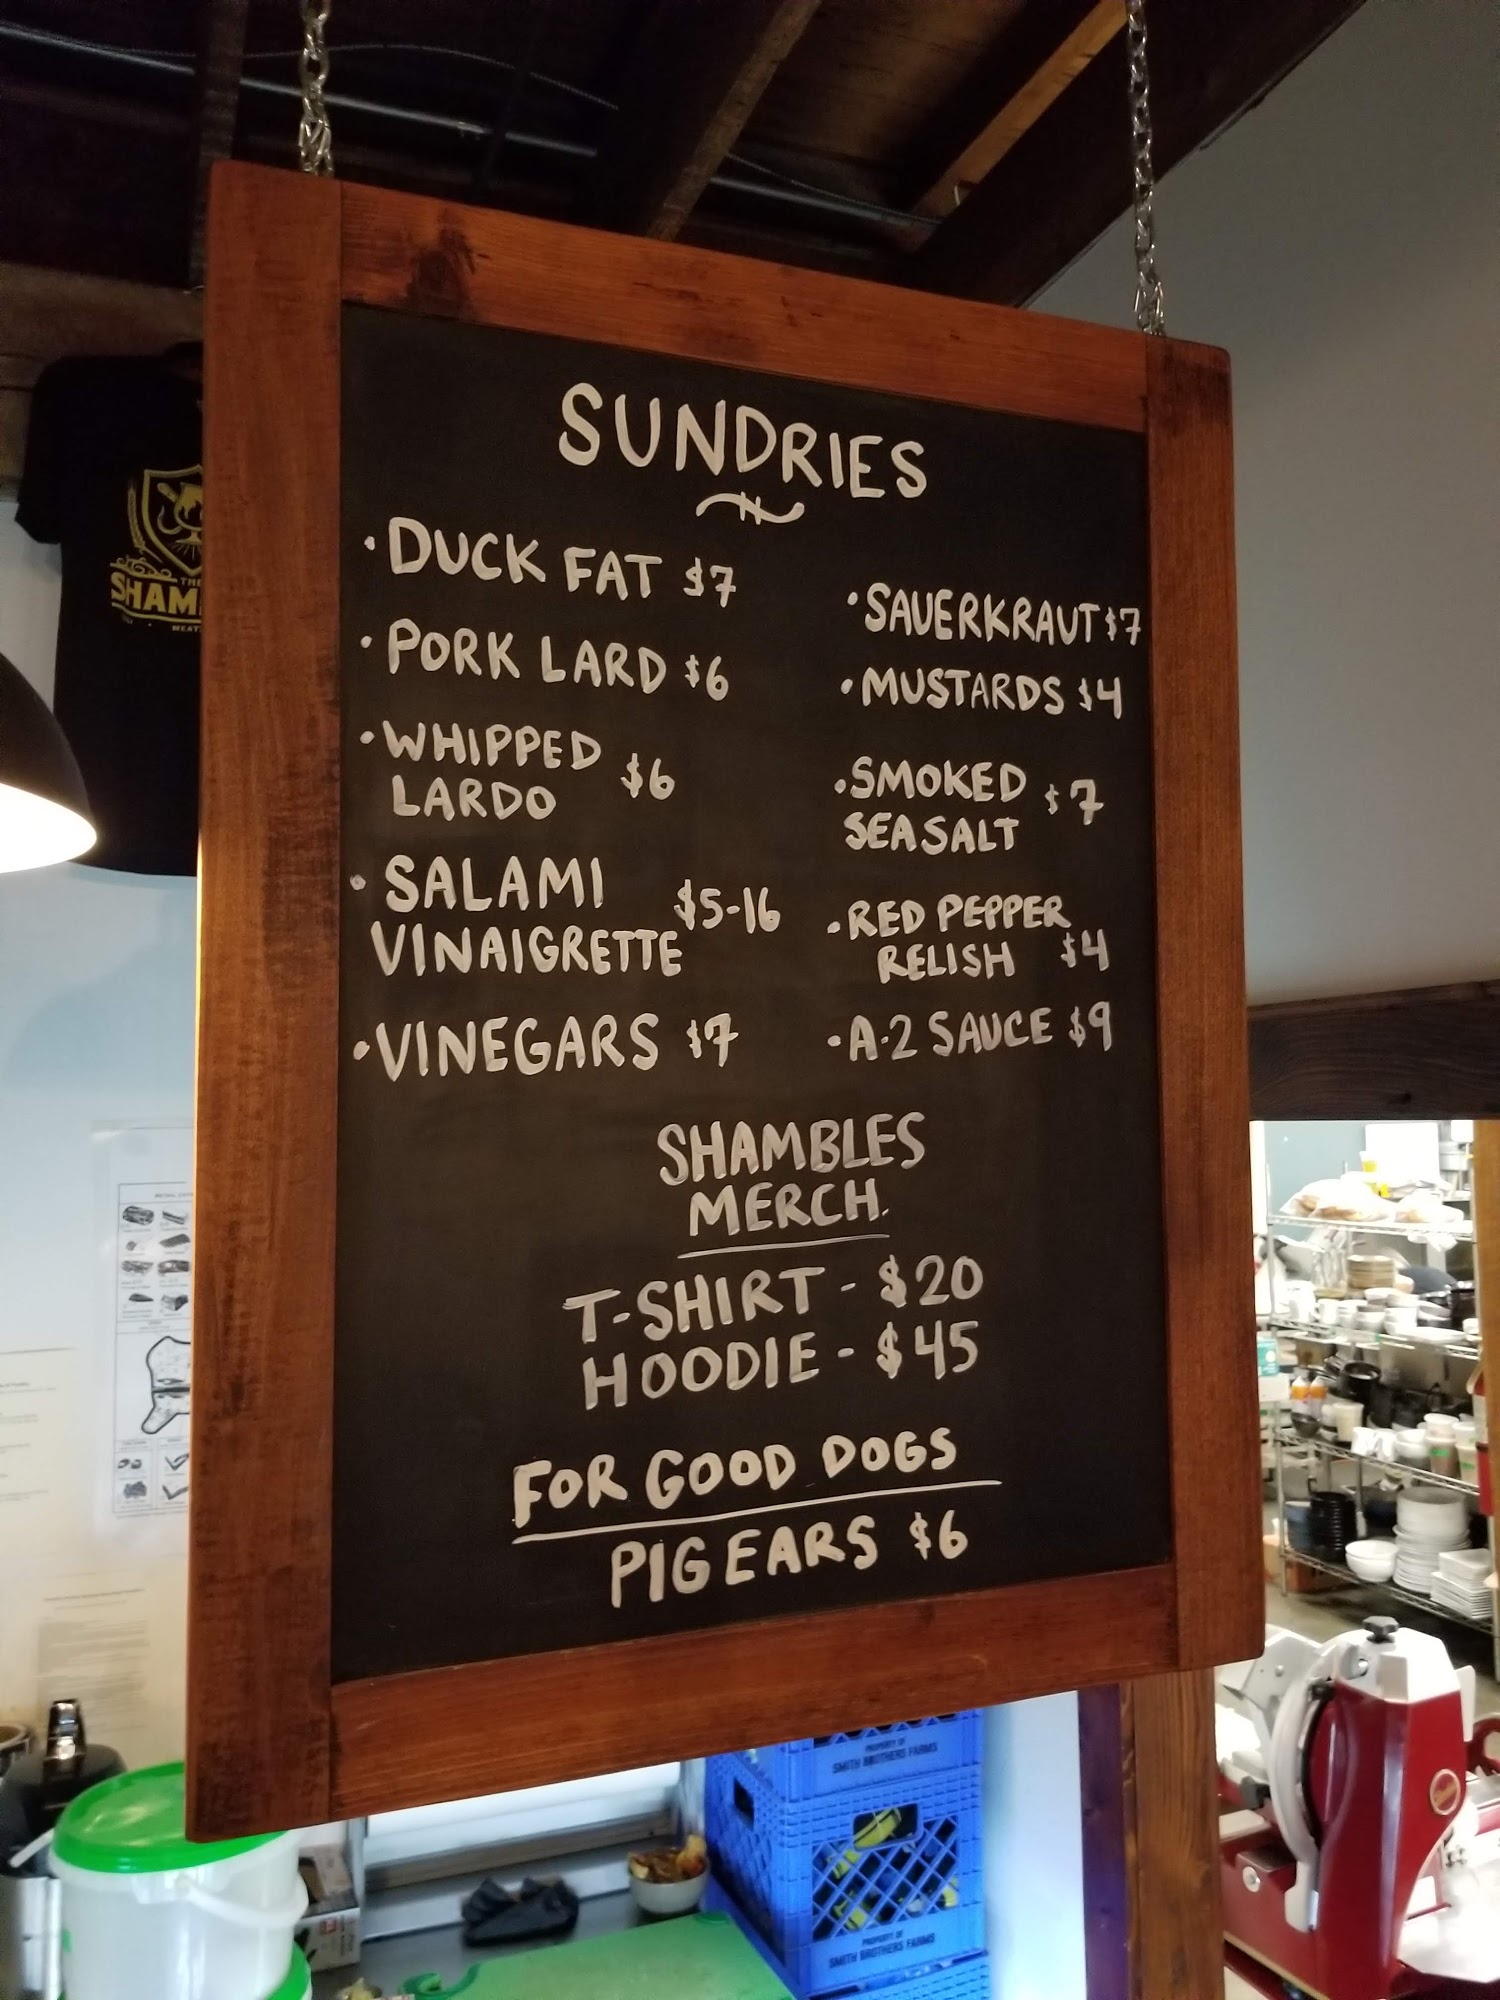 SUNDRIES
• DUCK FAT $7
• PORK LARD $6
• WHIPPED
LARDO $6
• SALAMI
VINAIGRETTE $5-16
• VINEGARS $7
• SAUERKRAUT $7
• MUSTARDS $4
• SMOKED
SEA SALT $7
• RED PEPPER
RELISH $4
• A-2 SAUCE $9
SHAMBLES
MERCH.
T-SHIRT - $20
HOODIE - $45
FOR GOOD DOGS
PIG EARS $6
THE
SHAM
PROPERTY OF
SMITH BROTHERS FARMS
PROPERTY OF
SMITH BROTHERS FARMS